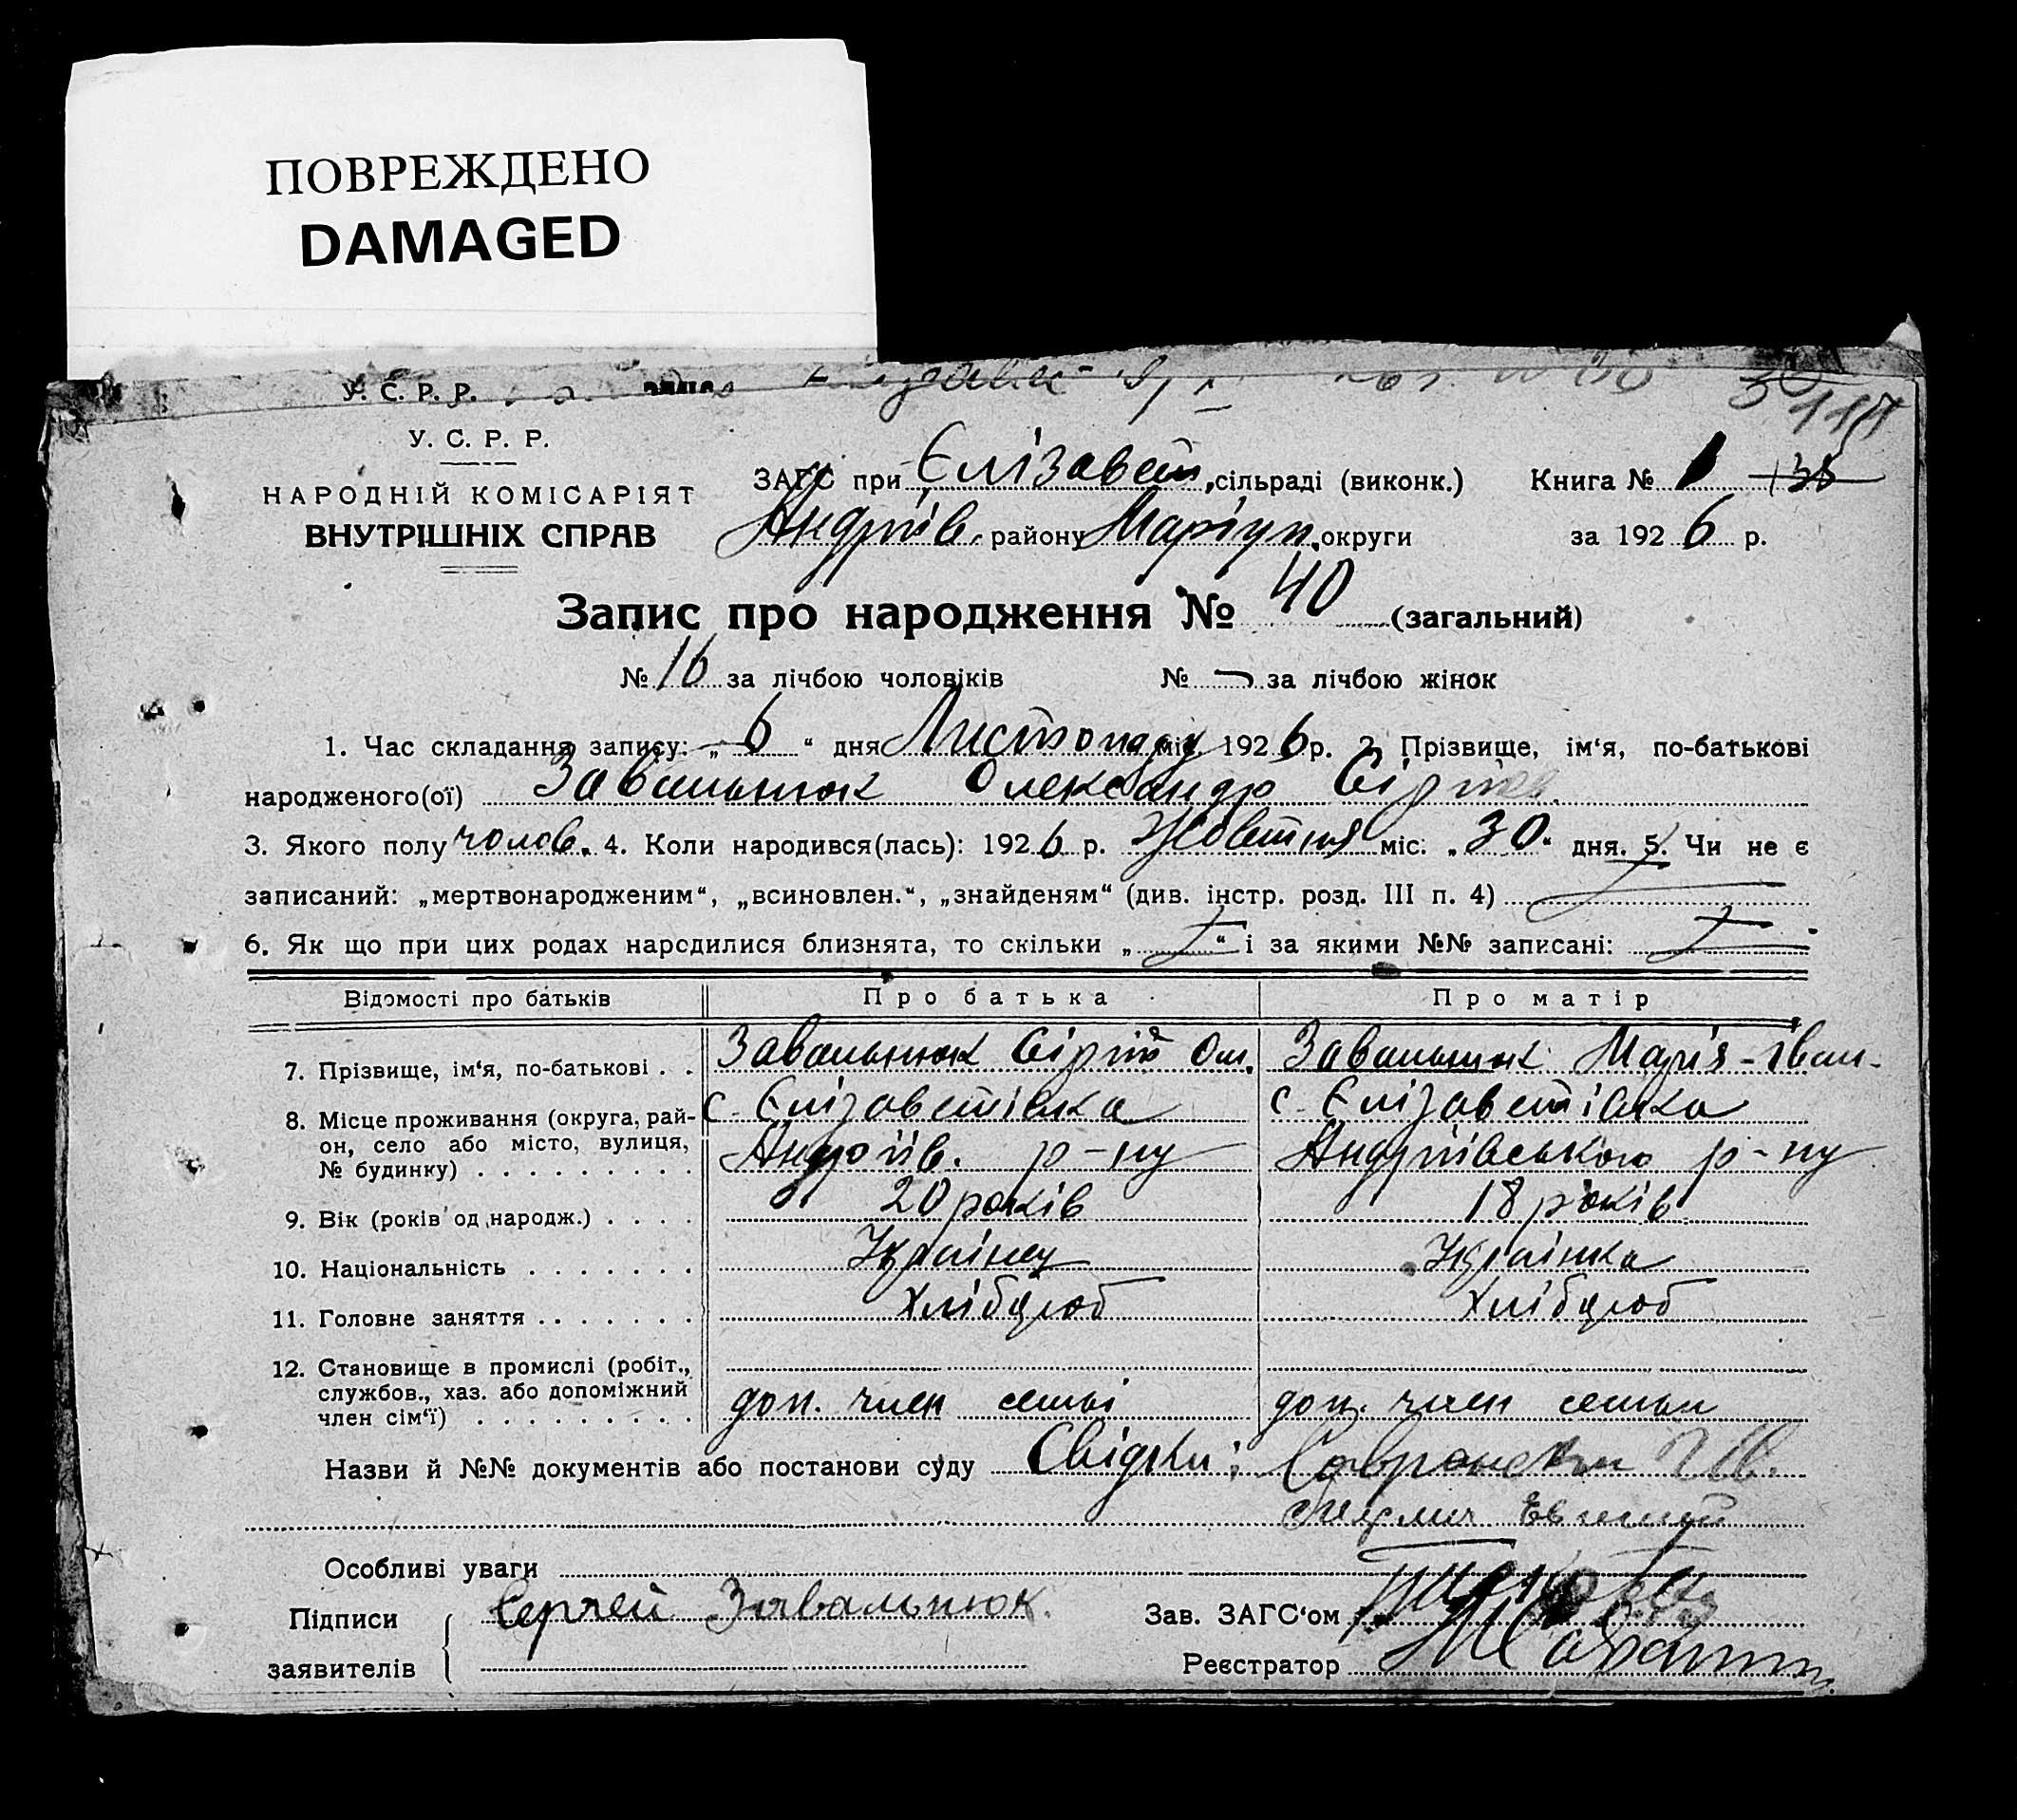 ПОВРЕЖДЕНО
DAMAGED
У. С. Р. Р.
У. С. Р. Р.
НАРОДНІЙ КОМІСАРІЯТ
ВНУТРІШНІХ СПРАВ
ЗАГС при Єлізавет. сільраді (виконк.) Книга № 1
Андріїв. району Маріуп. округи за 1926 р.
Запис про народження № 40 (загальний)
№ 16 за лічбою чоловіків № за лічбою жінок
1. Час складання запису: „ 6 “ дня Листопаду міс. 1926 р. 2. Прізвище, ім‘я, по-батькові
народженого(ої) Завальнюк Олександр Сіргіев.
3. Якого полу чолов. 4. Коли народився(лась): 1926 р. Жовтня міс. „ 30 “ дня. 5. Чи не є
записаний: „мертвонародженим“, „всиновлен.“, „знайденям“ (див. інстр. розд. III п. 4)
6. Як що при цих родах народилися близнята, то скільки „ “ і за якими №№ записані:
Відомості про батьків Про батька Про матір
7. Прізвище, ім‘я, по-батькові . . Завальнюк Сіргій Ол. Завальнюк Марія-Іван.
8. Місце проживання (округа, рай- с. Єлізаветівка с. Єлізаветівка
он, село або місто, вулиця, Андріїв. р-ну Андріївського р-ну
№ будинку) . . . . . . . . .
9. Вік (років од народж.) . . . . 20 років 18 років
10. Національність . . . . . . . Українец Українка
11. Головне заняття . . . . . . . Хлібороб Хлібороб
12. Становище в промислі (робіт.,
службов., хаз. або допоміжний доп. член семьі доп. член семьи
член сім‘ї) . . . . . . . . .
Назви й №№ документів або постанови суду Свідки:
Особливі уваги
Підписи Сергей Завальнюк. Зав. ЗАГС‘ом
заявителів Реєстратор